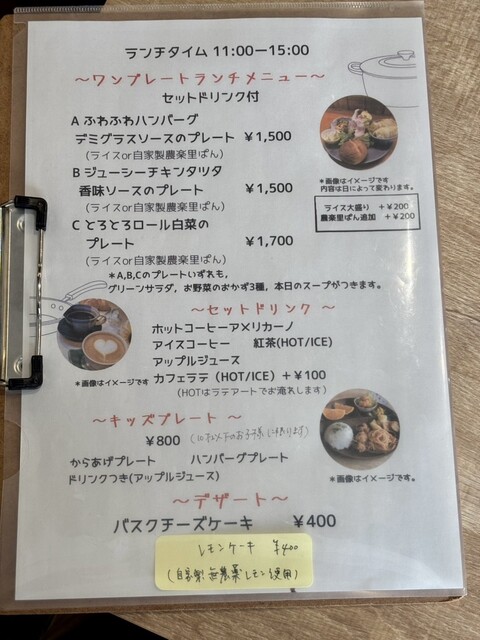 ランチタイム 11:00ー15:00
〜ワンプレートランチメニュー〜
セットドリンク付
A ふわふわハンバーグ
デミグラスソースのプレート ¥1,500
(ライスor自家製農楽里ぱん)
B ジューシーチキンタツタ
香味ソースのプレート ¥1,500
(ライスor自家製農楽里ぱん)
C とろとろロール白菜の
プレート ¥1,700
(ライスor自家製農楽里ぱん)
*A,B,Cのプレートいずれも,
グリーンサラダ, お野菜のおかず3種, 本日のスープがつきます。
*写真はイメージです
内容は日によって変わります。
ライス大盛り +¥200
農楽里ぱん追加 +¥200
〜セットドリンク 〜
ホットコーヒーアメリカーノ
アイスコーヒー 紅茶(HOT/ICE)
アップルジュース
カフェラテ (HOT/ICE) +¥100
(HOTはラテアートでお淹れします)
*写真はイメージです
〜キッズプレート 〜
¥800 (以下のお子様に限ります)
からあげプレート ハンバーグプレート
ドリンクつき(アップルジュース)
*写真はイメージです
〜デザート〜
バスクチーズケーキ ¥400
レモンケーキ ¥400
(自家製無農薬レモン使用)